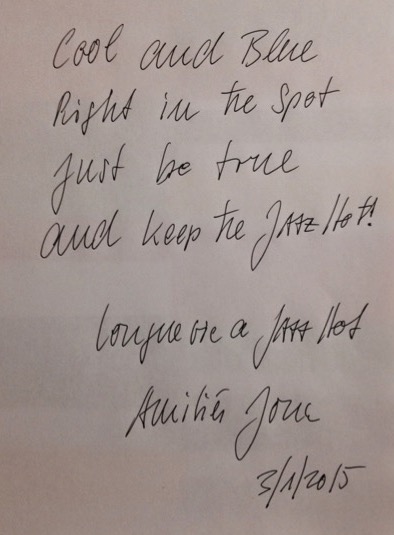 Cool and Blue
Right in the Spot
just be true
and keep the Jazz Hot!
Longue vie a Jazz Hot
Amitiés
3/1/2015